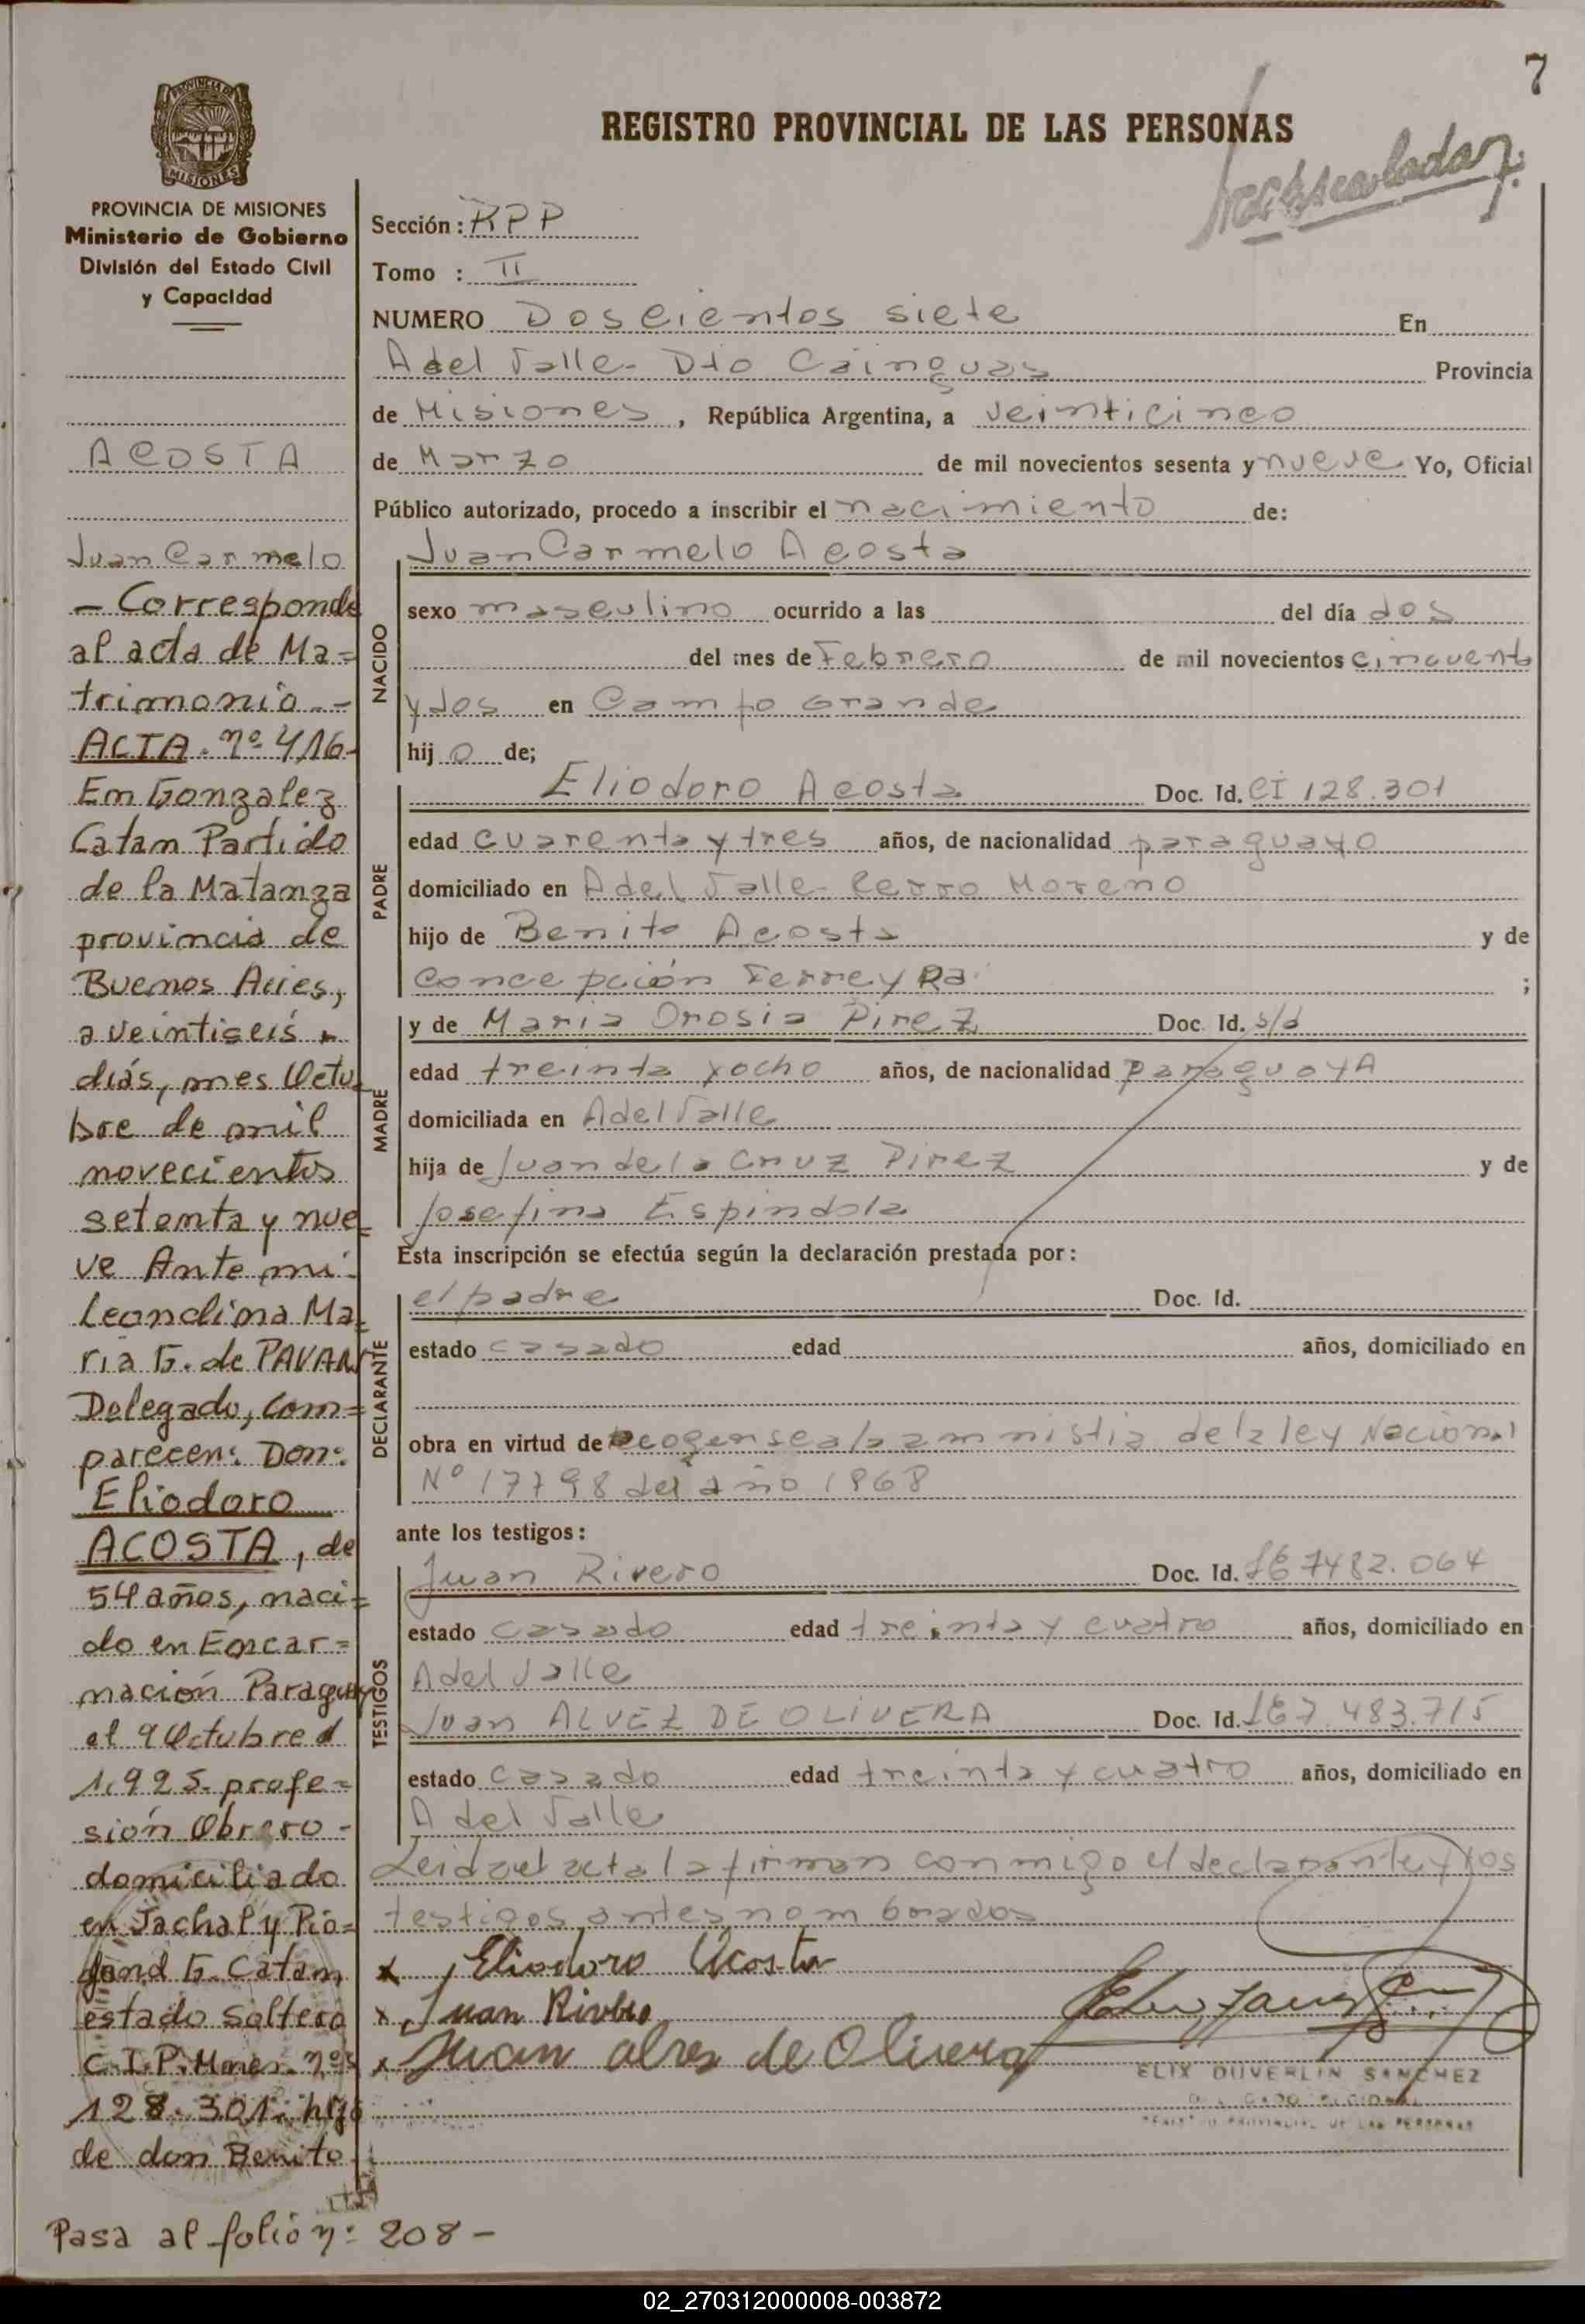 7
REGISTRO PROVINCIAL DE LAS PERSONAS
PROVINCIA DE MISIONES
Ministerio de Gobierno
División del Estado Civil
y Capacidad
ACOSTA
Juan Carmelo
- Corresponde
al acta de Ma=
trimonio.-
ACTA. nº 416-
Em Gonzalez
Catam Partido
de la Matanza
provincia de
Buenos Aires,
a veintiseis
días, mes Octu
bre de mil
novecientos
setenta y nue
ve Ante mi:
Leandina Ma
ria G. de PAVAN
Delegado, com=
parecen: Don:
Eliodoro
ACOSTA, de
54 años, naci=
do en Encar=
nación Paraguay
el 9 Octubre d
1.925. profe=
sión Obrero -
domiciliado
en Jachal y Pio=
G. Catam,
estado soltero
128.301. hijo
de don Benito
Pasa al folio nº: 208-
Sección: RPP
Tomo : II
NUMERO Doscientos siete En
A del Valle- Dto Cainguas Provincia
de Misiones, República Argentina, a veinticinco
de Marzo de mil novecientos sesenta y nueve Yo, Oficial
Público autorizado, procedo a inscribir el nacimiento de:
NACIDO
Juan Carmelo Acosta
sexo masculino ocurrido a las del día dos
del mes de Febrero de mil novecientos cincuenta
y dos en Campo Grande
hij o de;
PADRE
Eliodoro Acosta Doc. Id. CI 128.301
edad cuarenta y tres años, de nacionalidad paraguayo
domiciliado en A del Valle- Cerro Moreno
hijo de Benito Acosta y de
Concepción Ferreyra ;
MADRE
y de Maria Orosia Pirez Doc. Id. s/d
edad treinta y ocho años, de nacionalidad paraguaya
domiciliada en A del Valle
hija de Juan de la Cruz Pirez y de
Josefina Espindola
Esta inscripción se efectúa según la declaración prestada por:
DECLARANTE
el padre Doc. Id.
estado casado edad años, domiciliado en
obra en virtud de acogerse a la amnistia de la ley Nacional
Nº 17798 del año 1968
ante los testigos:
TESTIGOS
Juan Rivero Doc. Id. LE 7482.064
estado casado edad treinta y cuatro años, domiciliado en
A del Valle
Juan ALVEZ DE OLIVERA Doc. Id. LE 7.483.715
estado casado edad treinta y cuatro años, domiciliado en
A del Valle
Leida el acta la firman conmigo el declarante y los
testigos antes nombrados
x Eliodoro Acosta
x Juan Rivero
x Juan alves de Olivera
ELIX DUVERLIN SANCHEZ
REGISTRO PROVINCIAL DE LAS PERSONAS
02_270312000008-003872